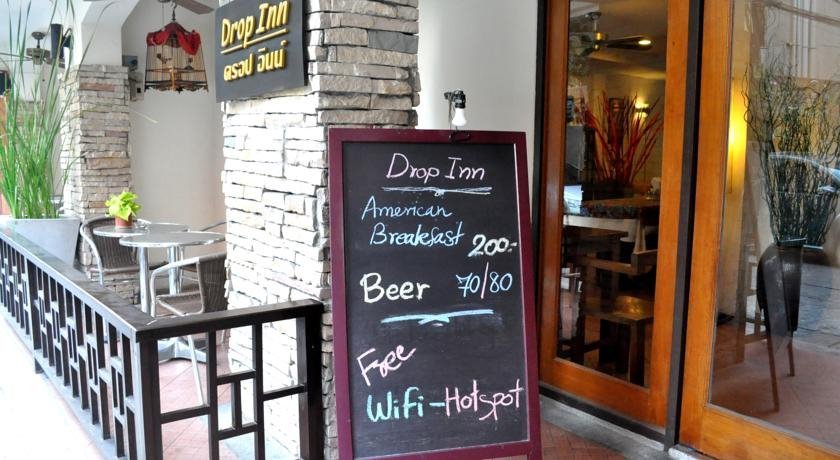 Drop Inn
ดรอป อินน์
Drop Inn
American
Breakfast 200.-
Beer 70/80
Free
WiFi-Hotspot